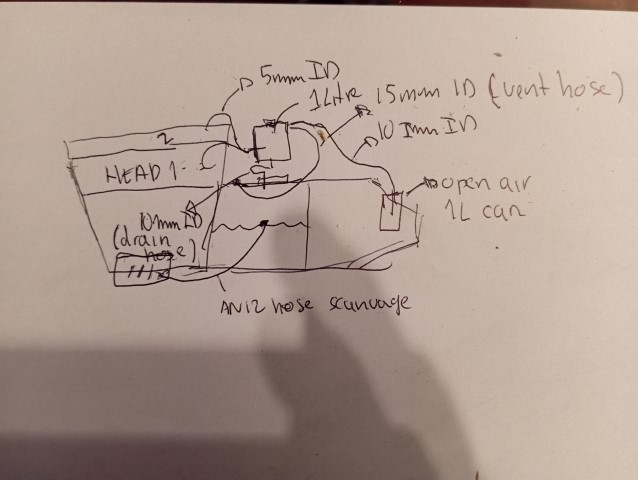 5mm ID
1 Litre
15mm ID (vent hose)
10 mm ID
2
HEAD 1
open air
1L can
10mm ID
(drain
hose)
AN12 hose scanvage